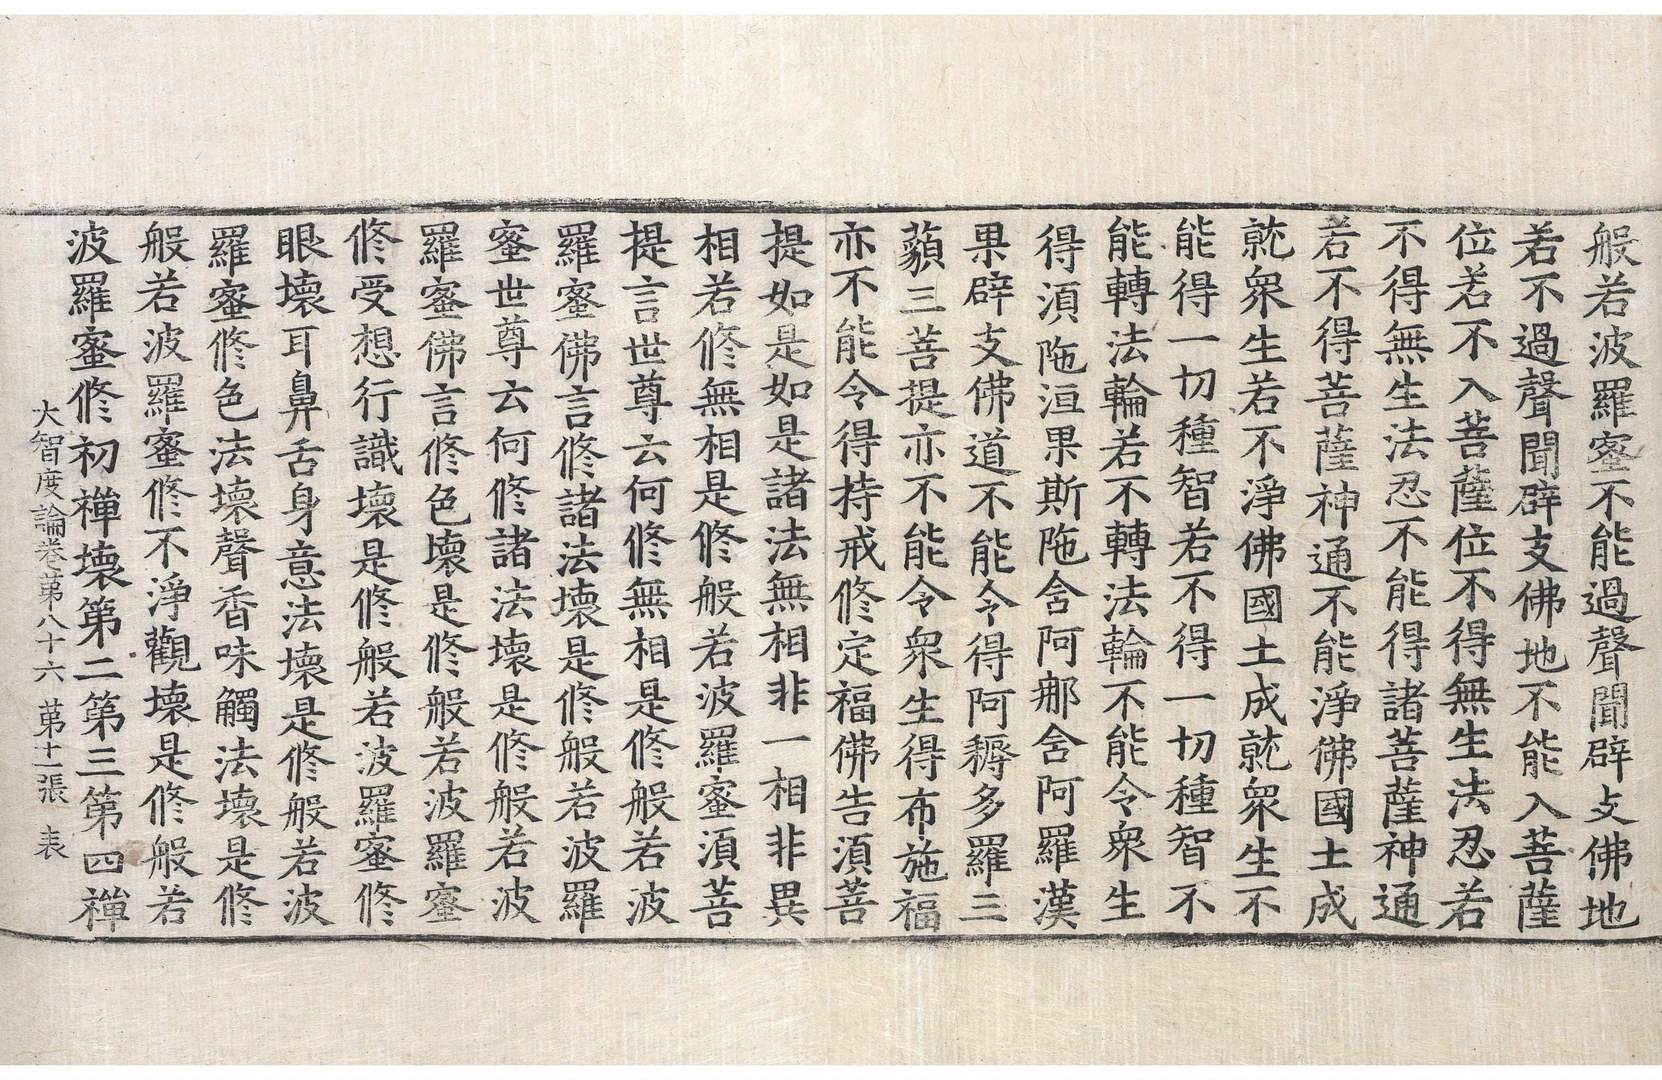 般若波羅蜜不能過聲聞辟支佛地
若不過聲聞辟支佛地不能入菩薩
位若不入菩薩位不得無生法忍若
不得無生法忍不能得諸菩薩神通
若不得菩薩神通不能淨佛國土成
就衆生若不淨佛國土成就衆生不
能得一切種智若不得一切種智不
能轉法輪若不轉法輪不能令衆生
得須陁洹果斯陁含阿那含阿羅漢
果辟支佛道不能令得阿耨多羅三
藐三菩提亦不能令衆生得布施福
亦不能令得持戒修定福佛告須菩
提如是如是諸法無相非一相非異
相若修無相是修般若波羅蜜須菩
提言世尊云何修無相是修般若波
羅蜜佛言修諸法壞是修般若波羅
蜜世尊云何修諸法壞是修般若波
羅蜜佛言修色壞是修般若波羅蜜
修受想行識壞是修般若波羅蜜修
眼壞耳鼻舌身意法壞是修般若波
羅蜜修色法壞聲香味觸法壞是修
般若波羅蜜修不淨觀壞是修般若
波羅蜜修初禪壞第二第三第四禪
大智度論卷苐八十六 苐十一張 表